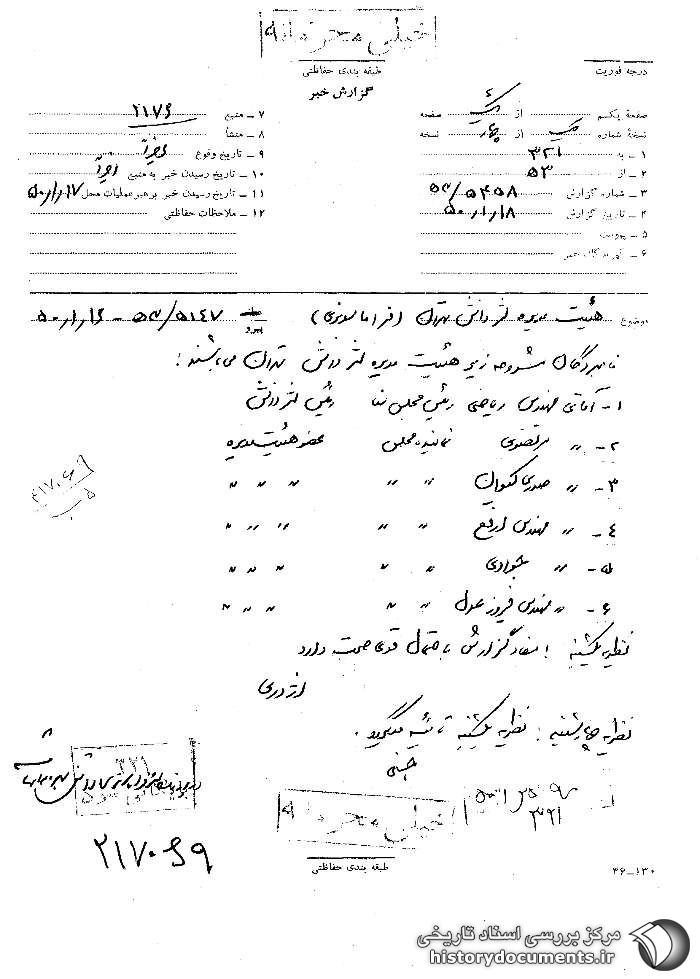 خیلی محرمانه
طبقه بندی حفاظتی
درجه فوریت
گزارش خبر
صفحهٔ یکم از یک صفحه
نسخهٔ شماره یک از چهار نسخه
۱ – به ۳۲۱
۲ – از ۵۳
۳ – شماره گزارش ۵۳/۵۴۵۸
۴ – تاریخ گزارش ۵۰/۱/۱۸
۵ – پیوست
۶ –
۷ – منبع ۲۱۷۶
۸ – منشأ
۹ – تاریخ وقوع اخیراً
۱۰ – تاریخ رسیدن خبر به منبع اخیراً
۱۱ – تاریخ رسیدن خبر برهبر عملیات محل ۵۰/۱/۱۷
۱۲ – ملاحظات حفاظتی
موضوع هیئت مدیره لژ دانش تهران (فراماسونری) پیرو ۵۳/۵۱۴۷ – ۵۰/۱/۱۶
نامبردگان مشروحه زیر هیئت مدیره لژ دانش تهران می‌باشند:
۱- آقای مهندس ریاضی رئیس مجلس رئیس لژ دانش
۲- " مرتضوی نماینده مجلس عضو هیئت مدیره
۳- " صدری کیوان " " " " "
۴- " مهندس ارفع " " " " "
۵- " " " " " "
۶- " مهندس فیروز عدل " " " " "
نظریه یکشنبه : مفاد گزارش باحتمال قوی صحت دارد
اژدری
نظریه چهارشنبه : نظریه یکشنبه تائید میگردد .
۲۱۷۰۶۹
۳۲۱
خیلی محرمانه
۳۲۱
۲۱۷۰۶۹
طبقه بندی حفاظتی
۴۶–۱۳۰
مرکز بررسی اسناد تاریخی
historydocuments.ir